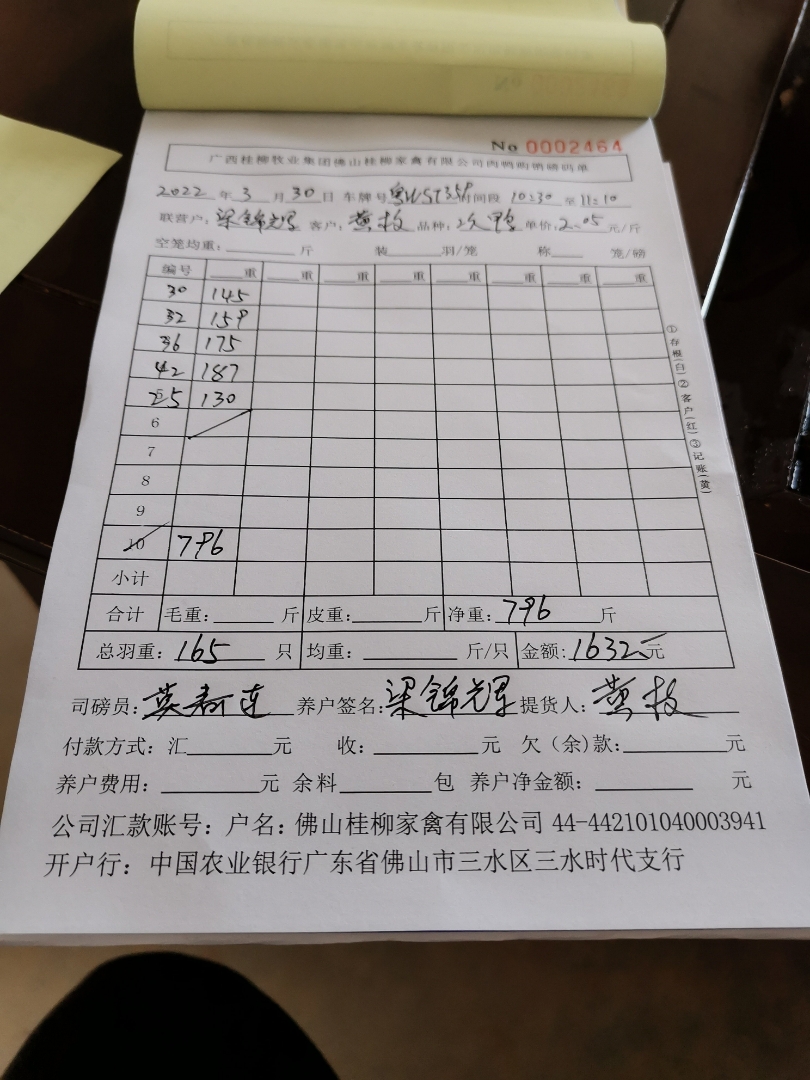 No 0002464
广西桂柳牧业集团佛山桂柳家禽有限公司肉鸭购销磅码单
2022 年 3 月 30 日 车牌号 时间段 10:30 至 11:10
联营户: 梁锦辉 客户: 黄枝 品种: 次鸭 单价: 2.05 元/斤
空笼均重: 斤 装 羽/笼 称 笼/磅
编号 重 重 重 重 重 重 重 重
30 145
32 159
36 175
42 187
25 130
6
7
8
9
10 796
小计
合计 毛重: 斤 皮重: 斤 净重: 796 斤
总羽重: 165 只 均重: 斤/只 金额: 1632 元
司磅员: 养户签名: 梁锦辉 提货人: 黄枝
付款方式: 汇 元 收: 元 欠(余)款: 元
养户费用: 元 余料 包 养户净金额: 元
公司汇款账号: 户名: 佛山桂柳家禽有限公司 44-442101040003941
开户行: 中国农业银行广东省佛山市三水区三水时代支行
①存根(白)②客户(红)③记账(黄)